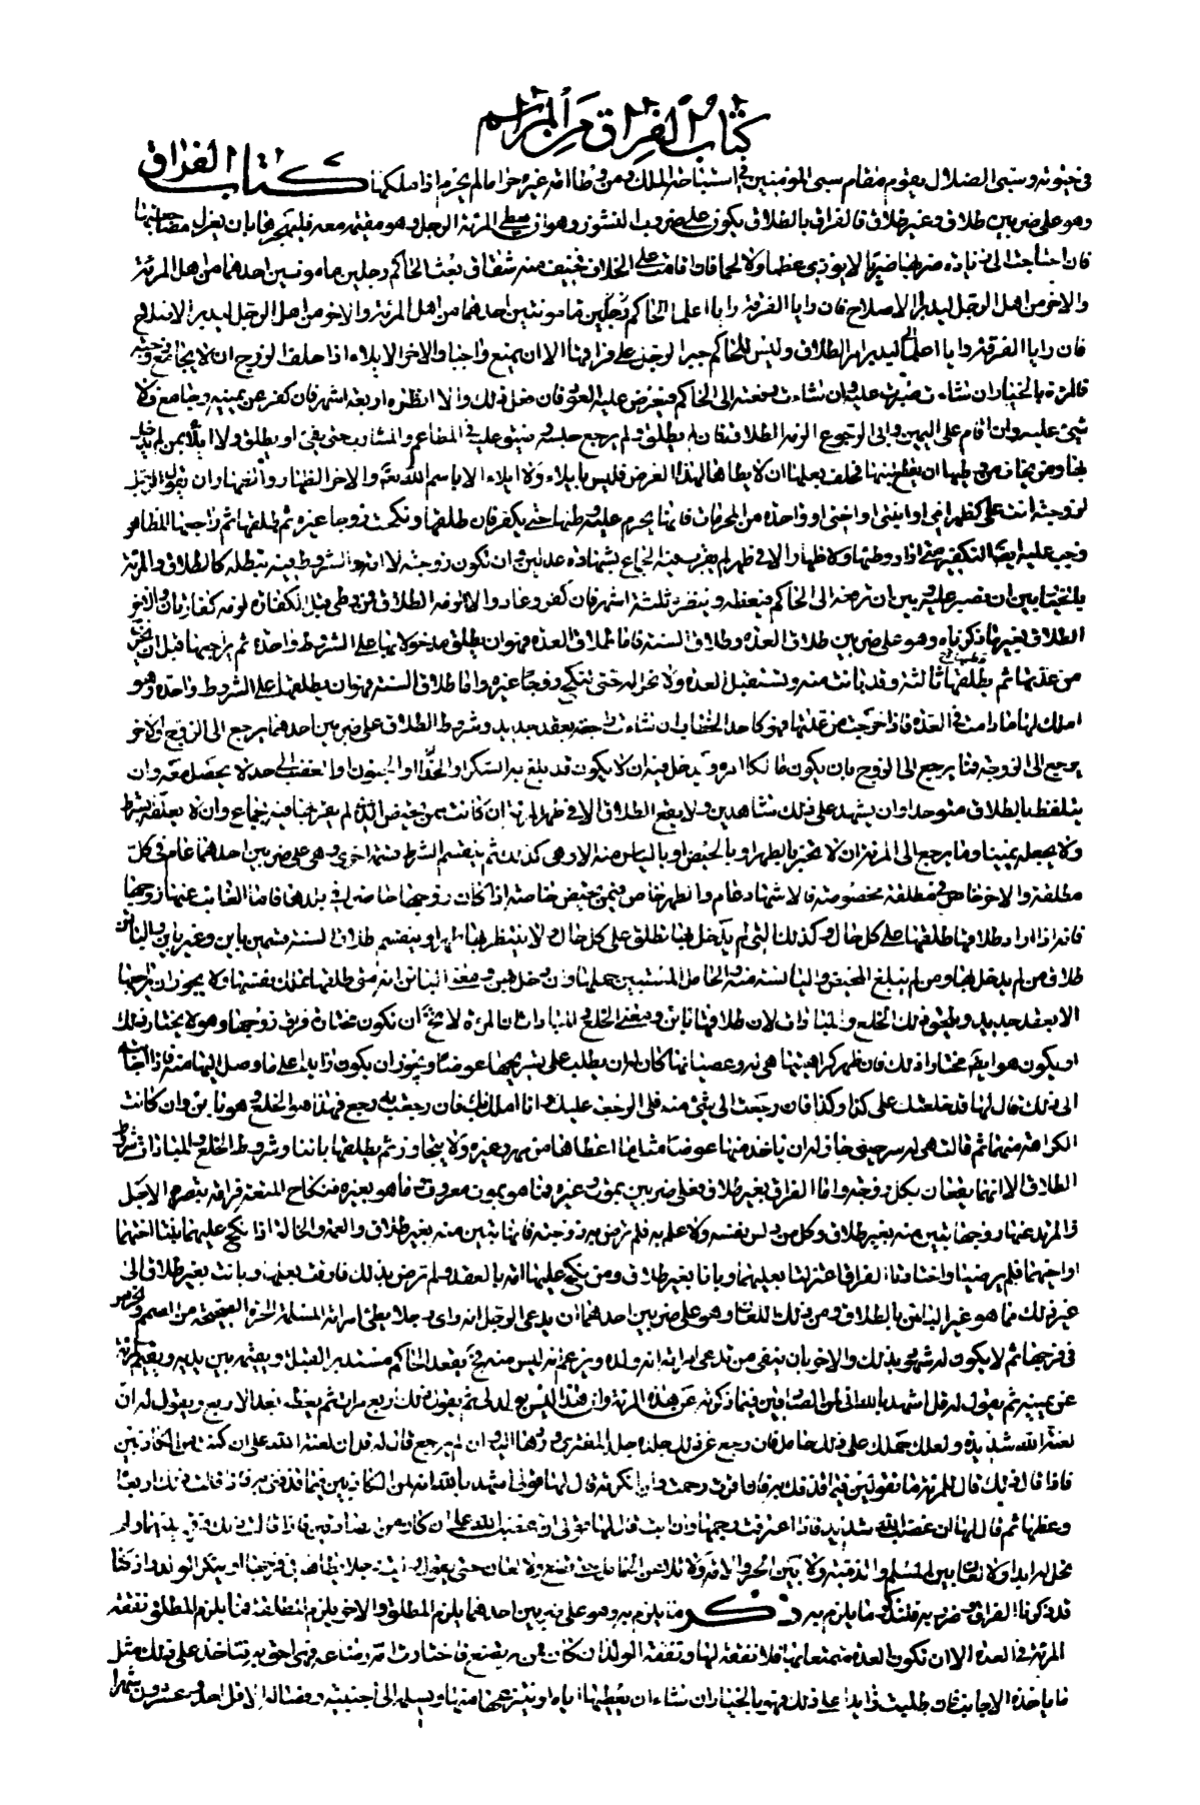 كتاب الفراق من المراسم
في حيوته وسبى الضلال يقوم مقام سبى المؤمنين في استباحة الملك ومن وطأ امة غيره حراما لم يحرم اذا ملكها كتاب الفراق
وهو على ضربين طلاق وغير طلاق فالفراق بالطلاق يكون على ضروب النشوز وهو ان المرئة الرجل وهو مقيمة معه فليهجرها بان يعزل
فان احتاجت الى زيادة ضربها ضربا لا يؤذي عظما ولا لحما فان اقامت على الخلاف فخيف منه شقاق بعث الحاكم رجلين مامونين احدهما من اهل المرئة
والاخر من اهل الرجل ليدبرا الاصلاح فان رايا الفرقة رايا اعلما الحاكم رجلين مامونين احدهما من اهل المرئة والاخر من اهل الرجل ليدبرا الاصلاح
فان رايا الفرقة رايا اعلما ليدبر امر الطلاق وليس للحاكم جبر الرجل على فراقها الا ان يمنع واجبا والاخر الايلاء اذا حلف الزوج ان لا يجامع زوجته
فالمرئة بالخيار ان شاءت صبرت عليه وان شاءت رفعته الى الحاكم فيعرض عليه العود فان فعل ذلك والا انظره اربعة اشهر فان كفر عن يمينه وجامع فلا
شئ عليه وان اقام على اليمين وابى الرجوع الزمه الطلاق فان لم يطلق ولم يرجع حبسه وضيق عليه في المطاعم والمشارب حتى يفئ او يطلق ولا ايلاء بمن لم يدخل
بها ومن يخاف من وطيها ان ينقطع لبنها فحلف بعلها ان لا يطاها لهذا الغرض فليس بايلاء ولا ايلاء الا باسم الله تعالى والاخر الظهار وان يقول الرجل
لزوجته انت على كظهر امي او ابنتي او اختي او واحدة من المحرمات فانها يحرم عليه وطيها حتى يكفر فان طلقها ونكحت زوجا غيره ثم طلقها ثم راجعها المظاهر
وجب عليه ايضا التكفير متى اراد وطيها ولا ظهار الا في طهر لم يقرب فيه الجماع بشهادة عدلين وان تكون زوجته لا امة والشروط فيه تبطله كالطلاق والمرئة
بالخيار بين ان تصبر عليه وبين ان ترفعه الى الحاكم فيعظه وينظره ثلثة اشهر فان كفر وعاد والا الزمه الطلاق فمن وطى قبل الكفارة لزمه كفارتان والاخر
الطلاق بغير ما ذكرناه وهو على ضربين طلاق العدة وطلاق السنة فاما طلاق العدة فهو ان يطلق مدخولا بها على الشروط واحدة ثم يراجعها قبل ان تخرج
من عدتها ثم يطلقها ثالثة وقد بانت منه وتستقبل العدة ولا تحل له حتى تنكح زوجا غيره واما طلاق السنة فهو ان يطلقها على الشروط واحدة وهو
املك بها ما دامت في العدة فاذا خرجت من عدتها فهو كاحد الخطاب ان شاءت رجعت بعقد جديد وشروط الطلاق على ضربين احدهما يرجع الى الزوج والاخر
يرجع الى الزوجة فما يرجع الى الزوج بان يكون مالكا امره ويدخل فيه ان لا يكون قد بلغ به السكر او الجنون او الغضب الى حد لا يحصل معه وان
يتلفظ بالطلاق موحدا وان يشهد على ذلك شاهدين ولا يقع الطلاق الا في طهر المرئة ان كانت ممن تحيض الذي لم يقربها فيه بجماع وان لا يعلقه بشرط
ولا يجعله يمينا وما يرجع الى المرئة ان لا تخبر بالطهر او بالحيض او بالياس منه الا وهى كذلك ثم ينقسم الشرط قسمة اخرى وهى على ضربين احدهما عام في كل
مطلقة والاخر خاص في مطلقة مخصوصة فالاشهاد عام والطهر خاص فيمن تحيض خاصة اذا كان زوجها حاضرا في بلدها فاما الغائب عنها زوجها
فانه اذا اراد طلاقها طلقها على كل حال وكذلك التي لم يدخل بها تطلق على كل حال ولا ينتظر بها طهرا وينقسم طلاق السنة قسمين باين وغير باين والباين
طلاق من لم يدخل بها ومن لم تبلغ المحيض واليائسة منه والحامل المستبين حملها وان دخل بهن ومعنى الباين انه متى طلقها تملك نفسها ولا يجوز ان يراجعها
الا بعقد جديد ويلحق بذلك الخلع والمباراة لان طلاقهما باين ومعنى الخلع والمباراة ان المرئة لا تخ ان تكون مختارة فراق زوجها وهو لا يختار ذلك
او يكون هو ايضا مختارا ذلك فان ظهر كراهيتها هى له وعصيانها كان له ان يطلب على تسريحها عوضا ويجوز ان يكون زايدا على ما وصل اليها منه فاذا اجابته
الى ذلك قال لها قد خلعتك على كذا وكذا فان رجعت الى بشئ منه فلى الرجعة عليك وانا املك بك فان رجعت به رجع فهذا هو الخلع وهو باين وان كانت
الكراهة منهما ثم قالت هى له سرحنى جاز له ان ياخذ منها عوضا مثل ما اعطاها من مهر وغيره ولا يتجاوز ثم يطلقها باينا وشروط الخلع والمباراة شروط
الطلاق الا انهما يقعان بكل زوجة واما الفراق بغير طلاق فعلى ضربين بموت وغيره فما هو بموت معروف وما هو بغيره فنكاح المتعة فراقه بتصرم الاجل
والمرتد عنها زوجها تبين منه بغير طلاق وكل من دلس نفسه ولا علم به فلم ترض به زوجته فانها تبين منه بغير طلاق والعمة والخالة اذا نكح عليهما بنتا اختهما
او اخيهما فلم يرضيا واختارتا الفراق اعتزلتا بعليهما وبانا بغير طلاق ومن نكح عليها امة بالعقد ولم ترض بذلك فارقت بعلها وبانت بغير طلاق الى
غير ذلك مما هو غير الباين بالطلاق ومن ذلك اللعان وهو على ضربين احدهما ان يدعى الرجل انه راى رجلا يطئ امراته المسلمة الحرة الصحيحة من الصمم والخرس
في فرجها ثم لا يكون له شهود بذلك والاخر بان ينفى من تدعى امراته انه ولده ويزعم انه ليس منه فح يقعد الحاكم مستدبر القبلة ويقيمه بين يديه ويقيم المرئة
عن يمينه ثم يقول له قل اشهد بالله انى لمن الصادقين فيما ذكرته عن هذه المرئة وان هذا ليس بولدى ثم يقول ذلك اربع مرات ثم يعظه بعد الاربع ويقول له ان
لعنة الله شديدة ولعلك حملك على ذلك حامل فان رجع عن ذلك جلده جلد المفترى وردها اليه وان لم يرجع قال له قل ان لعنة الله على ان كنت من الكاذبين
فاذا قال ذلك قال للمرئة ما تقولين فيما قذفك به فان اقرت رجمت وان انكرته قال لها قولى اشهد بالله انه لمن الكاذبين فيما قذفنى به فاذا قالت ذلك اربعا
وعظها ثم قال لها ان غضب الله شديد فاذا اعترفت رجمها وان ابت قال لها قولى ان غضب الله على ان كان من الصادقين فاذا قالت ذلك فرق بينهما ولم
تحل له ابدا ولا لعان بين المسلم والذمية ولا بين الحر والامة ولا تلاعن الحامل حتى تضع ولا لعان حتى يقول رايت رجلا يطاها في فرجها او ينكر الولد واذ كنا
قد ذكرنا الفراق وضروبه فلنذكر ما يلزم به ذكر ما يلزم به وهو على ضربين احدهما يلزم المطلق والاخر يلزم المطلقة فما يلزم المطلق نفقة
المرئة في العدة الا ان تكون العدة متمتعا بها فلا نفقة لها ونفقة الولد ان كان ممن يرضع فاختارت امه رضاعه فهى احق به فتاخذ على ذلك مثل
ما ياخذه الاجانب فان طلبت زايدا على ذلك فهو بالخيار ان شاء ان يعطيها اياه او ينتزعه منها ويسلمه الى اجنبية ورضاعه الاقل احد وعشرون شهرا